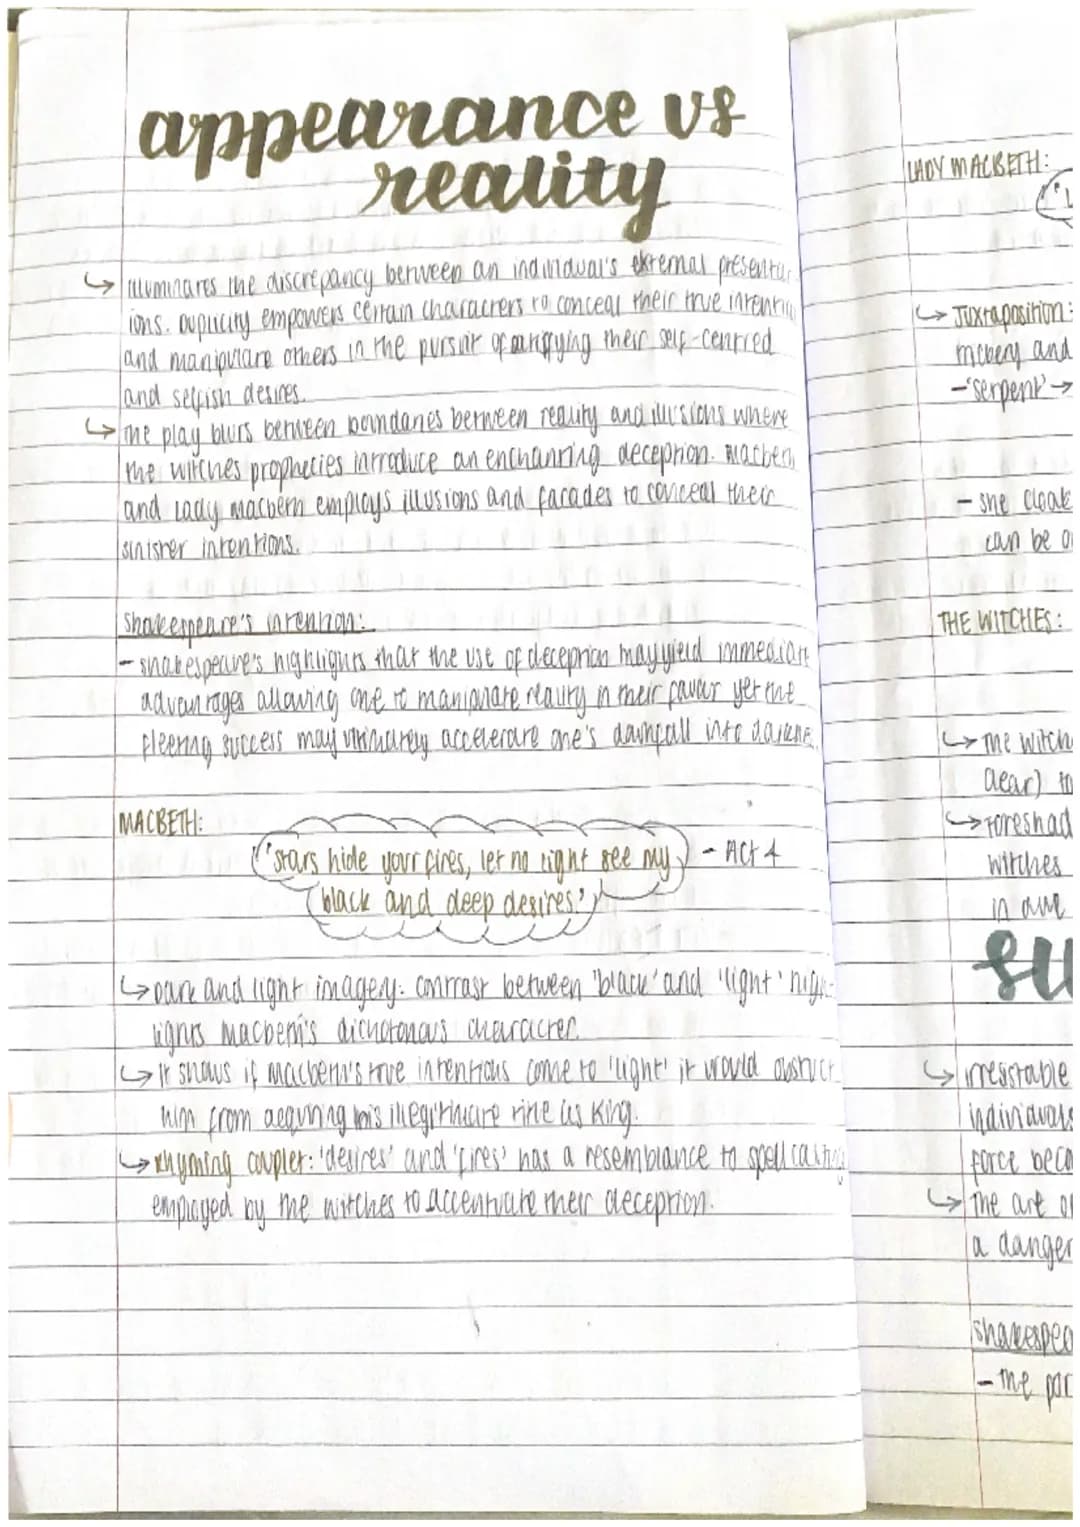 appearance vs
reality
↳ illuminates the discrepancy between an individual's external presentat
ions. Duplicity empowers certain characters to conceal their true intentio
and manipulate others in the pursuit of their self-centred
and selfish desires.
↳ The play blurs between boundaries between reality and illusions where
the witches prophecies introduce an enchanting deception. Macbeth
and Lady Macbeth employs illusions and facades to conceal their
sinister intentions.
Shakespeare's intention:
- Shakespeare's highlights that the use of deception may yield immediate
advantages allowing one to manipulate reality in their favour yet the
fleeting success may ultimately accelerate one's downfall into darkne
MACBETH:
"stars hide your fires, let no light see my - Act 4
black and deep desires.'
↳ Dark and light imagery: contrast between 'black' and 'light' high-
lights Macbeth's dichotonous character.
↳ It shows if Macbeth's true intentions come to 'light' it would obstruct
him from acquiring his illegitimate title as King.
↳ Rhyming couplet: 'desires' and 'fires' has a resemblance to spell casting
employed by the witches to accentuate their deception.
LADY MACBETH:
"L
↳ Juxtaposition:
and
- 'serpent' →
- she cloak
can be o
THE WITCHES:
↳ The witch
dear) to
↳ Foreshad
witches
in
su
↳ irresistable
individuals
force beco
↳ The are of
a danger
Shakespea
- The par